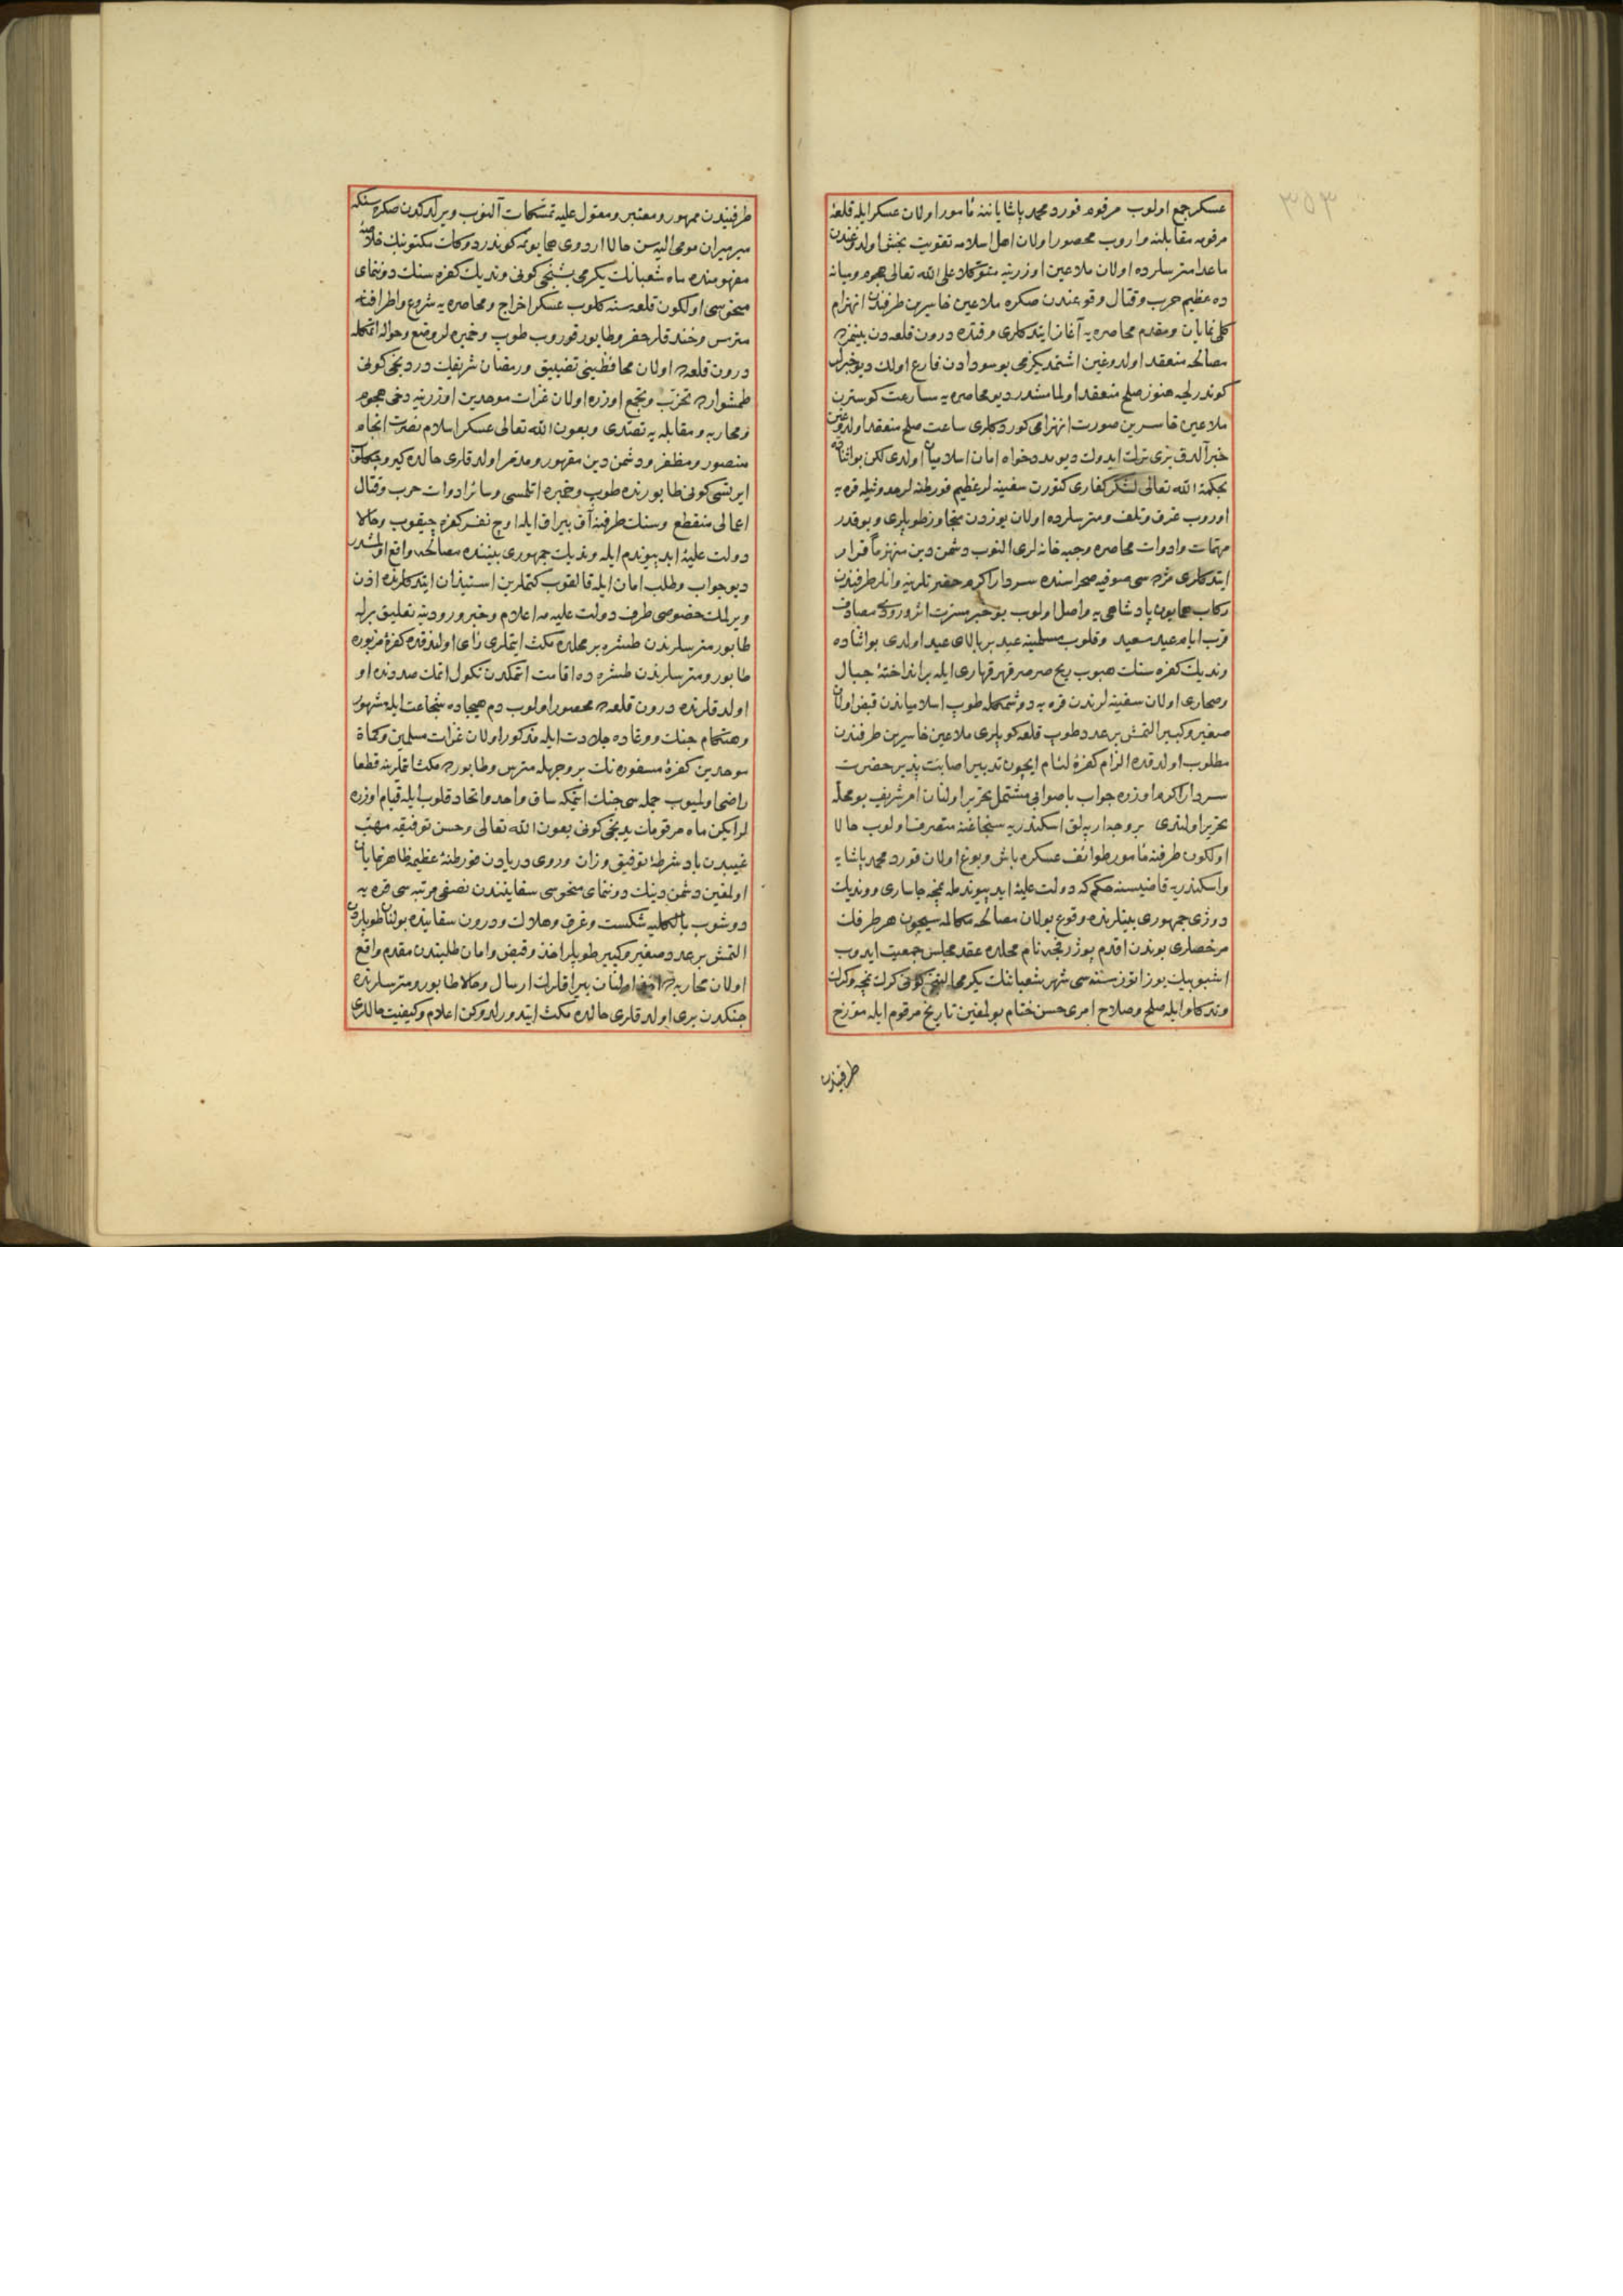 ٣٥٣
عسكر جمع اولوب مرقوم قورد محمد پاشا یاننه مأمور اولان عسكر ایله قلعهٔ
مرقومه مقابلنه واروب محصور اولان اهل اسلامه تقویت بخش اولدوغندن
ماعدا مترسلرده اولان ملاعین اوزرینه متوكلا علی الله تعالی هجوم ومیانه
ده عظیم حرب وقتال وقوعندن صكره ملاعین خاسرین طرفندن انهزام
كلی نمایان ومقدم محاصره یه آغاز ایتدكلری وقتده درون قلعه دن بینمزده
مصالحه منعقد اولدوغین اشتمدیكزمی بو سودادن فارغ اولك دیو خبرلر
كوندرلجه هنوز صلح منعقد اولمامشدر دیو محاصره یه مسارعت كوسترن
ملاعین خاسرین صورت انهزامی كوردكلری ساعت صلح منعقد اولدوغین
خبر آلدق بزی ترك ایدوك دیو مددخواه امان اسلامیان اولدی لكن بو اثناده
بحكمة الله تعالی لشكر كفاری كتورن سفینه لر عظیم فورطنه لر حدوثیله قره یه
اوروب غرق وتلف ومترسلرده اولان یوزدن متجاوز طوپلری و بوقدر
مهمات وادوات محاصره وجبه خانه لری النوب دشمن دین منهزماً فرار
ایتدكلری مژده سی صوفیه صحراسنده سردار اكرم حضرتلرینه وانلر طرفندن
ركاب همایون پادشاهی یه واصل اولوب بو خبر مسرت اثر ورودی مصادف
قرب ایام عید سعید وقلوب مسلمینه عید بر بالای عید اولدی بو اثناده
وندیك كفره سنك هبوب ریح صرصر قهر قهاری ایله بر انداختهٔ جبال
وصحاری اولان سفینه لرندن قره یه دوشمكله طوپ اسلامیاندن قبض اولان
صغیر وكبیر التمش بر عدد طوپ قلعه كوپلری ملاعین خاسرین طرفندن
مطلوب اولدقده الزام كفرهٔ لئام ایچون تدبیر اصابت پذیر حضرت
سردار اكرم اوزره جواب باصوابی مشتمل تحریر اولنان امر شریف بو محله
تحریر اولندی بر وجه ارپه لق اسكندریه سنجاغنه متصرف اولوب حالا
اولكون طرفنه مأمور طوائف عسكره باش وبوغ اولان قورد محمد پاشا یه
واسكندریه قاضیسنه حكم كه دولت علیهٔ ابد پیوندمله نمچه چاساری ووندیك
دوژی جمهوری بینلرنده وقوع بولان مصالحه مكالمه سیچون هر طرفك
مرخصلری بوندن اقدم پوژرفچه نام محلده عقد مجلس جمعیت ایدوب
اشبو بیك یوز اتوز سنه سی شهر شعباننك یكرمی النجی كونی كرك نمچه وكرك
وندكلو ایله صلح وصلاح امری حسن ختام بولمغین تاریخ مرقوم ایله مورخ
طرفیندن
طرفیندن ممهور ومعتبر ومعقول علیه تمسكات آلنوب ویرلدكدن صكره سنكه
میرمیران مومی الیه سن حالا اردوی همایونمه كوندردوكك مكتوبنك خلاصهٔ
مفهومنده ماه شعبانك یكرمی بشنجی كونی وندیك كفره سنك دوننمای
منحوسی اولكون قلعه سنه كلوب عسكر اخراج ومحاصره یه شروع واطرافنه
مترس وخندقلر حفر وطابور قوروب طوپ وخمپره لر وضع وحواله اتمكله
درون قلعه ده اولان محافظینی تضییق ورمضان شریفك دردنجی كونی
طمشواره تحزب وتجمع اوزره اولان غزات موحدین اوزرینه دخی هجوم
ومحاربه ومقابله یه تصدی وبعون الله تعالی عسكر اسلام نصرت انجام
منصور ومظفر ودشمن دین مقهور ومدمر اولدقلری حالده كیرو چكلوب
ایرتسی كونی طابورنده طوپ وخمپره اتلمسی وسائر ادوات حرب وقتال
اعمالی منقطع وسنك طرفنه آق بیراق ایله اوچ نفر كفره چیقوب وحالا
دولت علیهٔ ابد پیوندم ایله وندیك جمهوری بیننده مصالحه واقع اولمشدر
دیو جواب وطلب امان ایله قالقوب كتملرین استیذان ایتدكلرنده اذن
ویرلمك خصوصی طرف دولت علیه مه اعلام وخبر ورودینه تعلیق برله
طابور مترسلرندن طشره بر محلده مكث ایتملری رأی اولندقده كفرهٔ مزبوره
طابور ومترسلرندن طشره ده اقامت اتمكدن نكول اتمك صددنده او
اولدقلرنده درون قلعه ده محصور اولوب دم هیجاده شجاعت ایله مشهور
وهنكام جنك ووغاده جلادت ایله مذكور اولان غزات مسلمین وكماة
موحدین كفرهٔ مسفوره نك بر وجهله مترس وطابورده مكث اتملرینه قطعا
راضی اولمیوب جمله سی جنك اتمكه ساق واحد واتحاد قلوب ایله قیام اوزره
لر ایكن ماه مرقومك یدنجی كونی بعون الله تعالی وحسن توفیقه مهب
غیبدن باد شرطهٔ توفیق وزان وروی دریادن فورطنهٔ عظیمه ظاهر ونمایان
اولمغین دشمن دینك دوننمای منحوسی سفاینندن نصفی مرتبه سی قره یه
دوشوب بالكلیه شكست وغرق وهلاك ودرون سفاینده بولنان طوپلردن
التمش بر عدد صغیر وكبیر طوپلر اخذ وقبض وامان طلبندن مقدم واقع
اولان محاربه ده اخذ اولنان بیراقلرك ارسال وحالا طابور ومترسلرنده
جنكدن بری اولدقلری حالده مكث ایتدورلدوكن اعلام وكیفیت حاللری